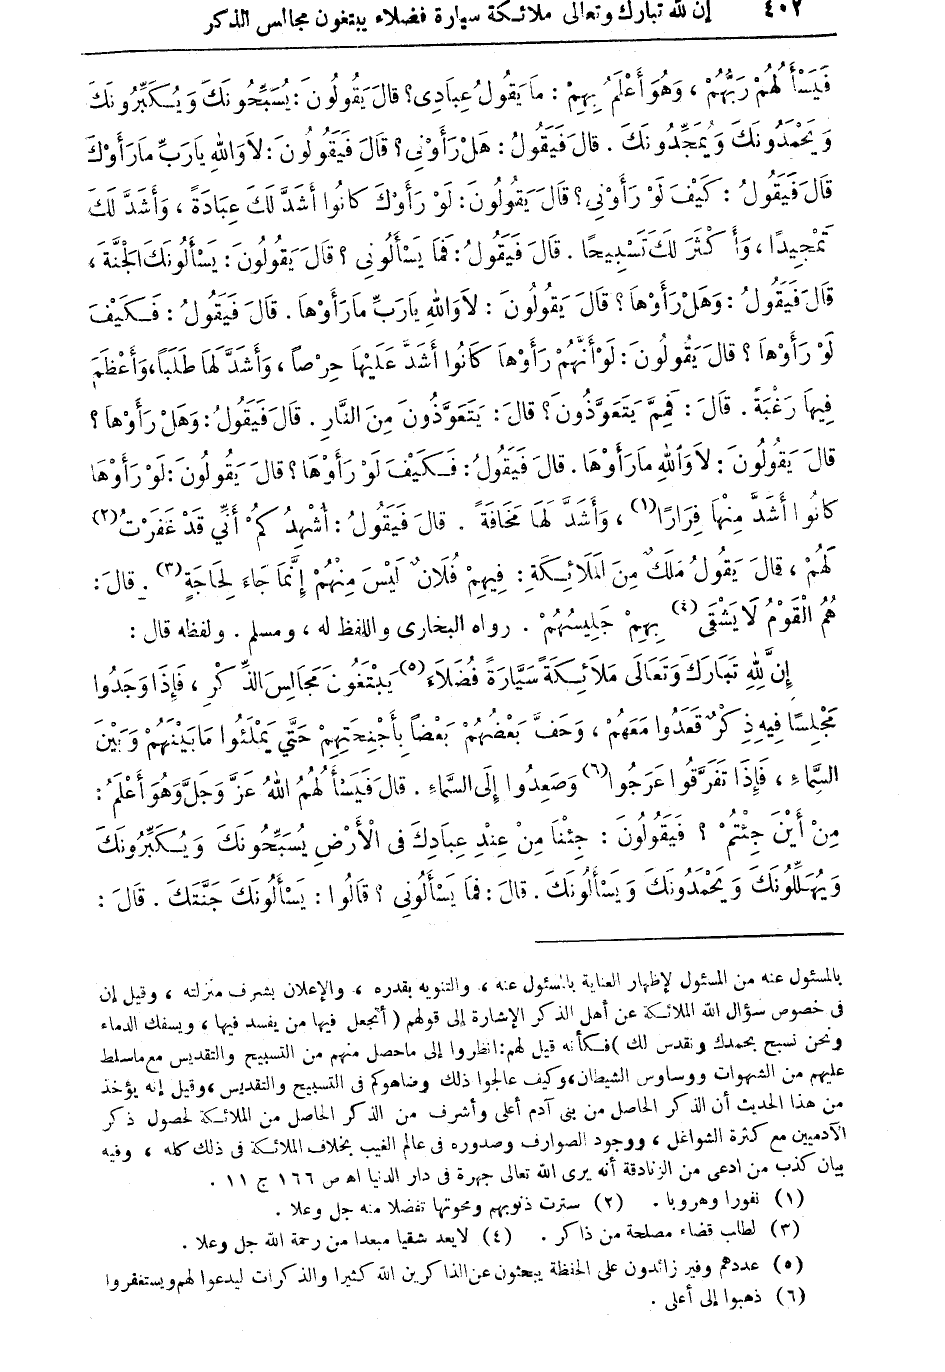 ٤٠٢ إن لله تبارك وتعالى ملائكة سيارة فضلاء يبتغون مجالس الذكر
فَيَسْأَلُهُمْ رَبُّهُمْ ، وَهُوَ أَعْلَمُ بِهِمْ : مَا يَقُولُ عِبَادِى؟ قالَ يَقُولُونَ : يُسَبِّحُونَكَ وَيُكَبِّرُونَكَ
وَيَحْمَدُونَكَ وَيُمَجِّدُونَكَ . قالَ فَيَقُولُ : هَلْ رَأَوْنِي؟ قالَ فَيَقُولُونَ : لاَ وَاللهِ يارَبِّ مارَأَوْكَ
قالَ فَيَقُولُ : كَيْفَ لَوْ رَأَوْنِي؟ قالَ يَقُولُونَ : لَوْ رَأَوْكَ كانُوا أَشَدَّ لَكَ عِبَادَةً ، وَأَشَدَّ لَكَ
تَمْجِيدًا ، وَأَكْثَرَ لَكَ تَسْبِيحًا . قالَ فَيَقُولُ : فَمَا يَسْأَلُونِي ؟ قالَ يَقُولُونَ : يَسْأَلُونَكَ الْجَنَّةَ ،
قالَ فَيَقُولُ : وَهَلْ رَأَوْهَا ؟ قالَ يَقُولُونَ : لاَ وَاللهِ يارَبِّ مارَأَوْها . قالَ فَيَقُولُ : فَكَيْفَ
لَوْ رَأَوْها ؟ قالَ يَقُولُونَ : لَوْ أَنَّهُمْ رَأَوْها كانُوا أَشَدَّ عَلَيْها حِرْصاً ، وَأَشَدَّ لَها طَلَبَاً ، وَأَعْظَمَ
فِيها رَغْبَةً . قالَ : فَمِمَّ يَتَعَوَّذُونَ؟ قالَ : يَتَعَوَّذُونَ مِنَ النَّارِ . قالَ فَيَقُولُ : وَهَلْ رَأَوْها ؟
قالَ يَقُولُونَ : لاَ وَاللهِ مارَأَوْها . قالَ فَيَقُولُ : فَكَيْفَ لَوْ رَأَوْهَا ؟ قالَ يَقُولُونَ : لَوْ رَأَوْهَا
كانُوا أَشَدَّ مِنْهَا فِرَارًا (١) ، وَأَشَدَّ لَهَا مَخَافَةً . قالَ فَيَقُولُ : أُشْهِدُكُمْ أَنِّي قَدْ غَفَرْتُ (٢)
لَهُمْ ، قالَ يَقُولُ مَلَكٌ مِنَ الْمَلاَئِكَةِ : فِيهِمْ فُلاَنٌ لَيْسَ مِنْهُمْ إِنَّمَا جَاءَ لِحَاجَةٍ (٣) . قالَ :
هُمُ الْقَوْمُ لاَ يَشْقَى (٤) بِهِمْ جَلِيسُهُمْ . رواه البخارى واللفظ له ، ومسلم . ولفظه قال :
إِنَّ لِلهِ تَبَارَكَ وَتَعَالَى مَلاَئِكَةً سَيَّارَةً فُضَلاَءَ (٥) يَبْتَغُونَ مَجَالِسَ الذِّكْرِ ، فَإِذَا وَجَدُوا
مَجْلِسًا فِيهِ ذِكْرٌ قَعَدُوا مَعَهُمْ ، وَحَفَّ بَعْضُهُمْ بَعْضاً بِأَجْنِحَتِهِمْ حَتَّى يَمْلَئُوا مَا بَيْنَهُمْ وَبَيْنَ
السَّمَاءِ ، فَإِذَا تَفَرَّقُوا عَرَجُوا (٦) وَصَعِدُوا إِلَى السَّمَاءِ . قالَ فَيَسْأَلُهُمُ اللهُ عَزَّ وَجَلَّ وَهُوَ أَعْلَمُ :
مِنْ أَيْنَ جِئْتُمْ ؟ فَيَقُولُونَ : جِئْنَا مِنْ عِنْدِ عِبَادِكَ فِى الْأَرْضِ يُسَبِّحُونَكَ وَيُكَبِّرُونَكَ
وَيُهَلِّلُونَكَ وَيَحْمَدُونَكَ وَيَسْأَلُونَكَ . قالَ : فَمَا يَسْأَلُونِي ؟ قَالُوا : يَسْأَلُونَكَ جَنَّتَكَ . قَالَ :
بالمسئول عنه من المسئول لإظهار العناية بالمسئول عنه ، والتنويه بقدره ، والإعلان بشرف منزلته ، وقيل إن
فى خصوص سؤال الله الملائكة عن أهل الذكر الإشارة إلى قولهم ( أتجعل فيها من يفسد فيها ، ويسفك الدماء
ونحن نسبح بحمدك ونقدس لك ) فكأنه قيل لهم : انظروا إلى ماحصل منهم من التسبيح والتقديس مع ماسلط
عليهم من الشهوات ووساوس الشيطان ، وكيف عالجوا ذلك وضاهوكم فى التسبيح والتقديس ، وقيل إنه يؤخذ
من هذا الحديث أن الذكر الحاصل من بنى آدم أعلى وأشرف من الذكر الحاصل من الملائكة لحصول ذكر
الآدميين مع كثرة الشواغل ، ووجود الصوارف وصدوره فى عالم الغيب بخلاف الملائكة فى ذلك كله ، وفيه
بيان كذب من ادعى من الزنادقة أنه يرى الله تعالى جهرة فى دار الدنيا اه ص ١٦٦ ج ١١ .
(١) نفورا وهروبا . (٢) سترت ذنوبهم ومحوتها تفضلا منه جل وعلا .
(٣) لطالب قضاء مصلحة من ذاكر . (٤) لايعد شقيا مبعدا من رحمة الله جل وعلا .
(٥) عددهم وفير زائدون على الحفظة يبحثون عن الذاكرين الله كثيرا والذكرات ليدعوا لهم ويستغفروا
(٦) ذهبوا إلى أعلى .